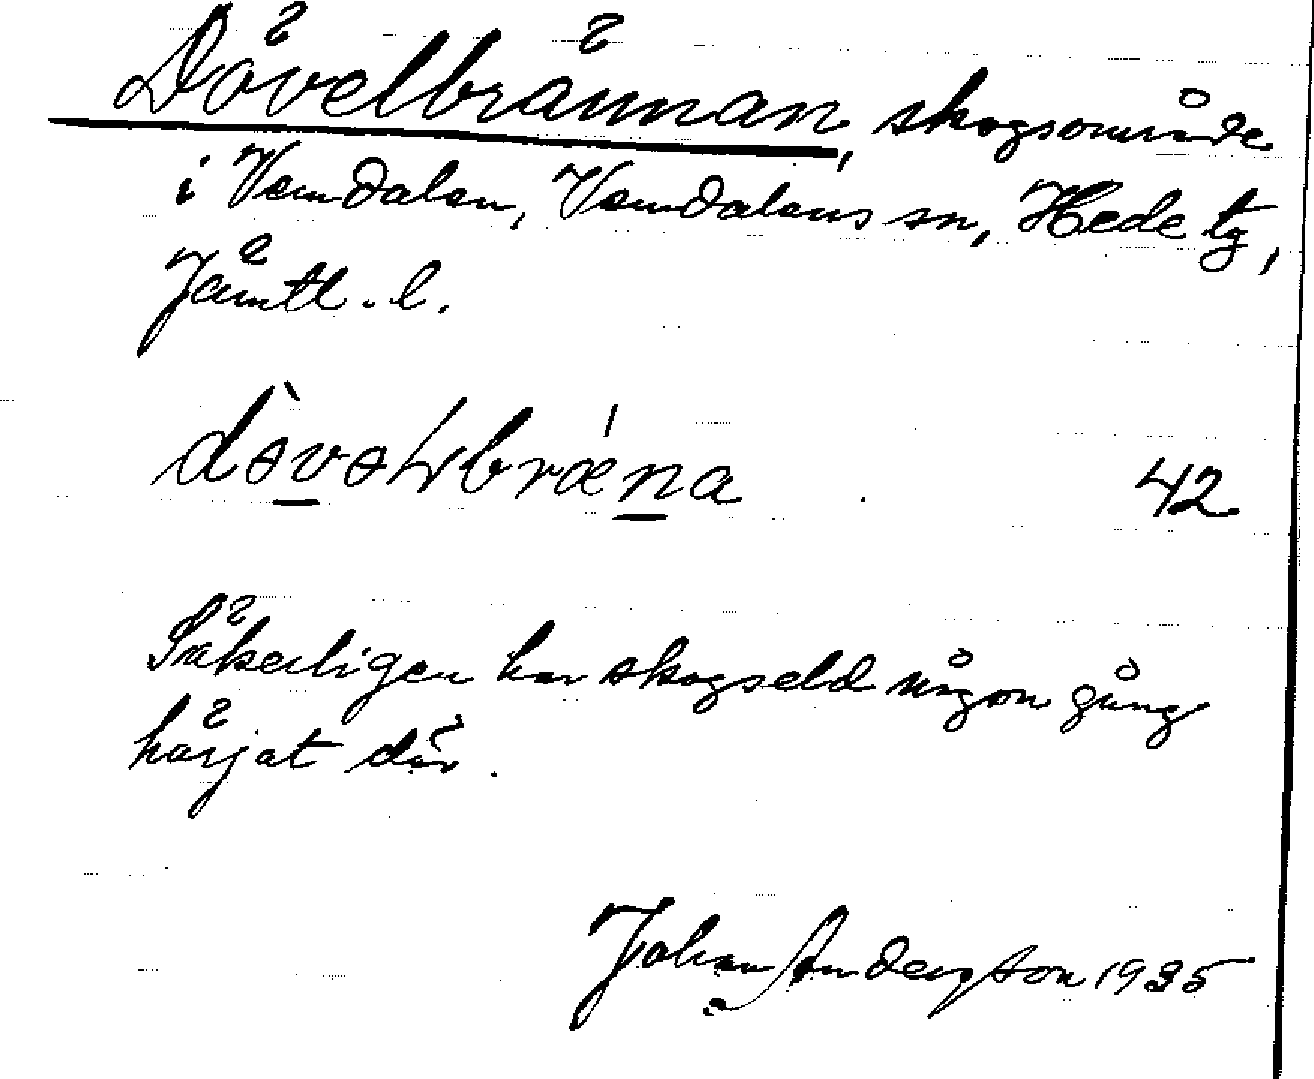 Dövelbrännan, skogsområde
i Vemdalen, Vemdalens sn, Hede tg,
Jämtl. l.
42
Säkerligen har skogseld någon gång
härjat där.
Johan Andersson 1935